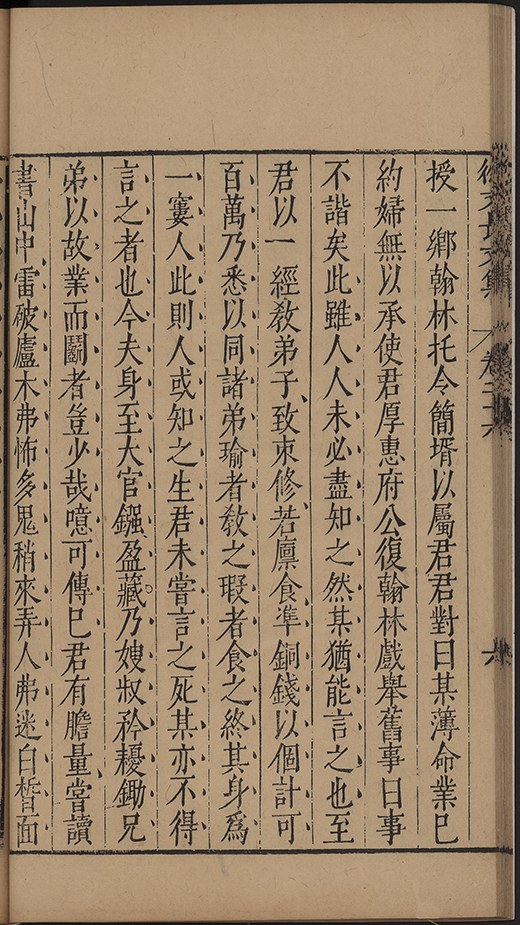 徐文長文集 卷二十六 六
授一鄉翰林托令簡壻以屬君君對曰某薄命業巳
約婦無以承使君厚惠府公復翰林戲舉舊事曰事
不諧矣此雖人人未必盡知之然某猶能言之也至
君以一經敎弟子致束修若廪食準銅錢以個計可
百萬乃悉以同諸弟瑜者敎之瑕者食之終其身爲
一窶人此則人或知之生君未嘗言之死某亦不得
言之者也今夫身至大官鏹盈藏乃嫂叔矜耰鋤兄
弟以故業而鬬者豈少哉噫可傳巳君有膽量嘗讀
書山中雷破廬木弗怖多鬼稍來弄人弗迷白晳面